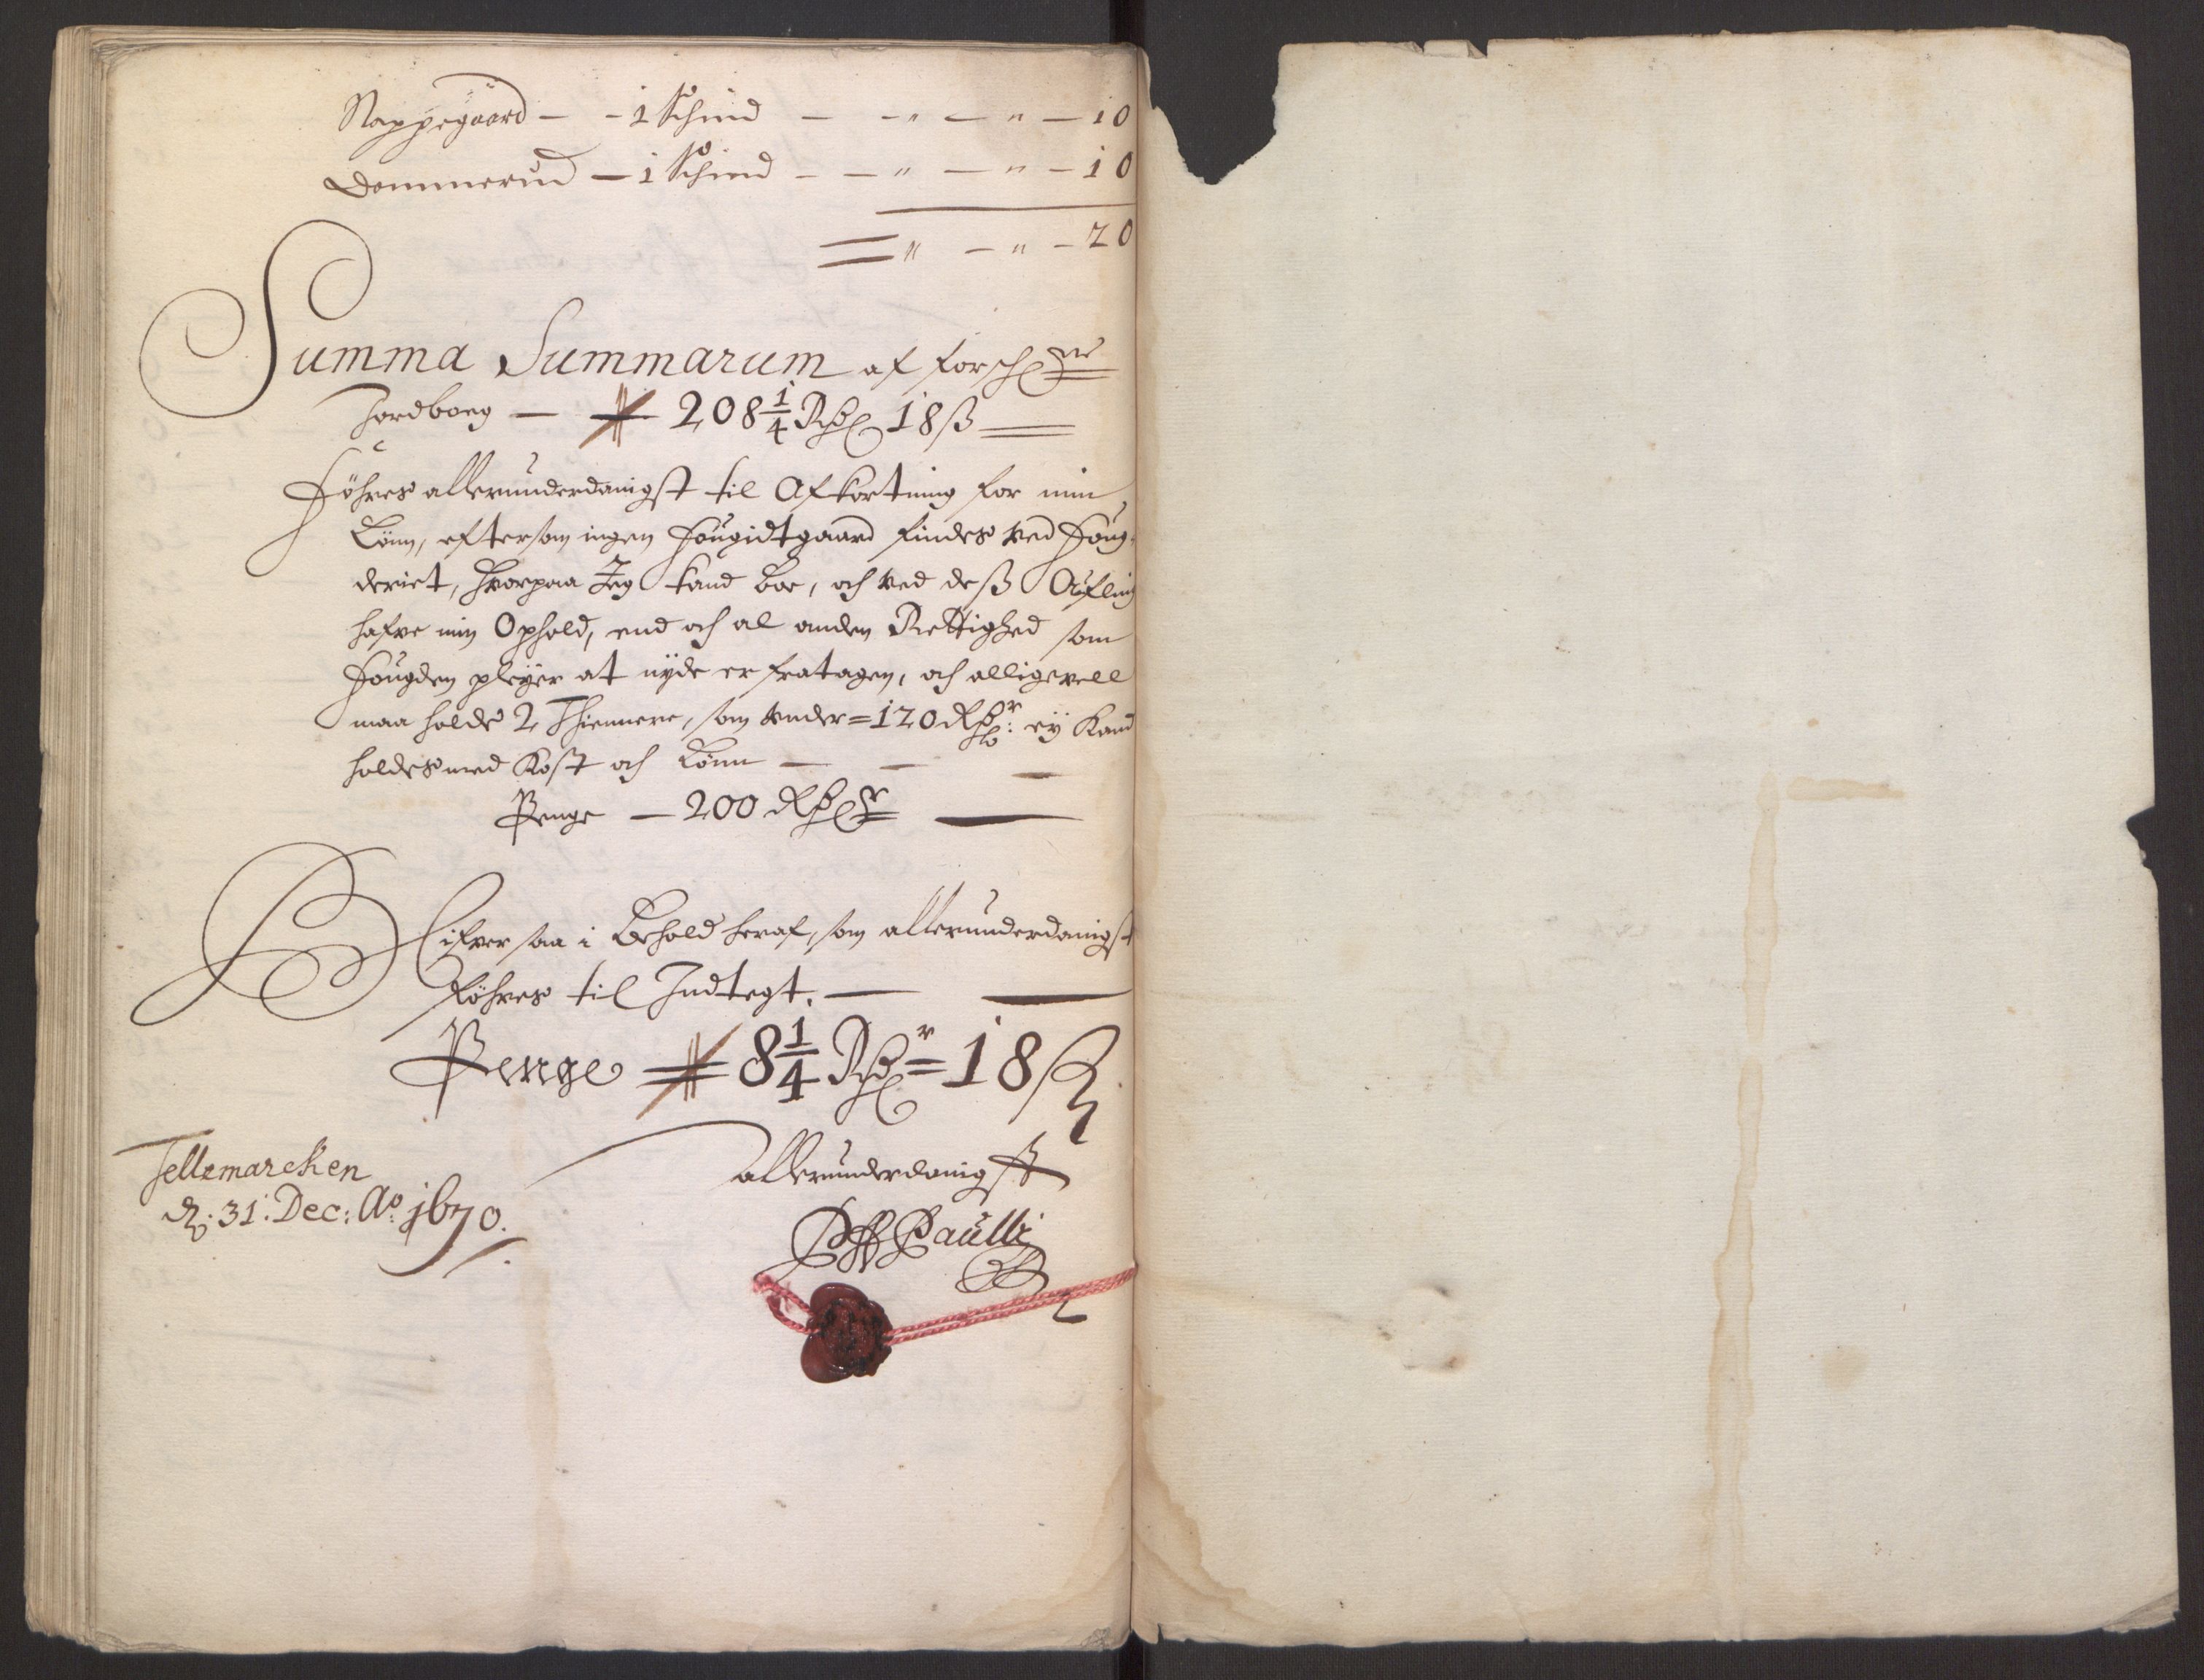 Nappegaard — - 1 Schind — - " — " — 10
Dommerud — 1 Schind - — " — " — 10
= " — " — 20
Summa Summarum af forsch:ne
Jordboeg — 208 1/4 Rdr 18 ß
Föhres allerunderdanigst til Afkortning for min
Lönn, eftersom ingen Fougidtgaard findes ved Foug-
deriet, Hvorpaa Jeg kand boe, och ved deß Aufling
hafve min Ophold, end och al anden Rettighed som
Fougden pleyer at nyde er fratagen, och alligevell
maa holde 2 Thiennere, som under = 120 Rdr: ey kand
holdes med Kost och Lönn — —
Penge — 200 Rdr
Blifver saa i Behold heraf, som allerunderdanigst
föhres til Indtegt. —
Penge 8 1/4 Rdr = 18 ß
allerunderdanigst
Tellemarcken
d. 31. Dec: Ao 1670.
Paulli